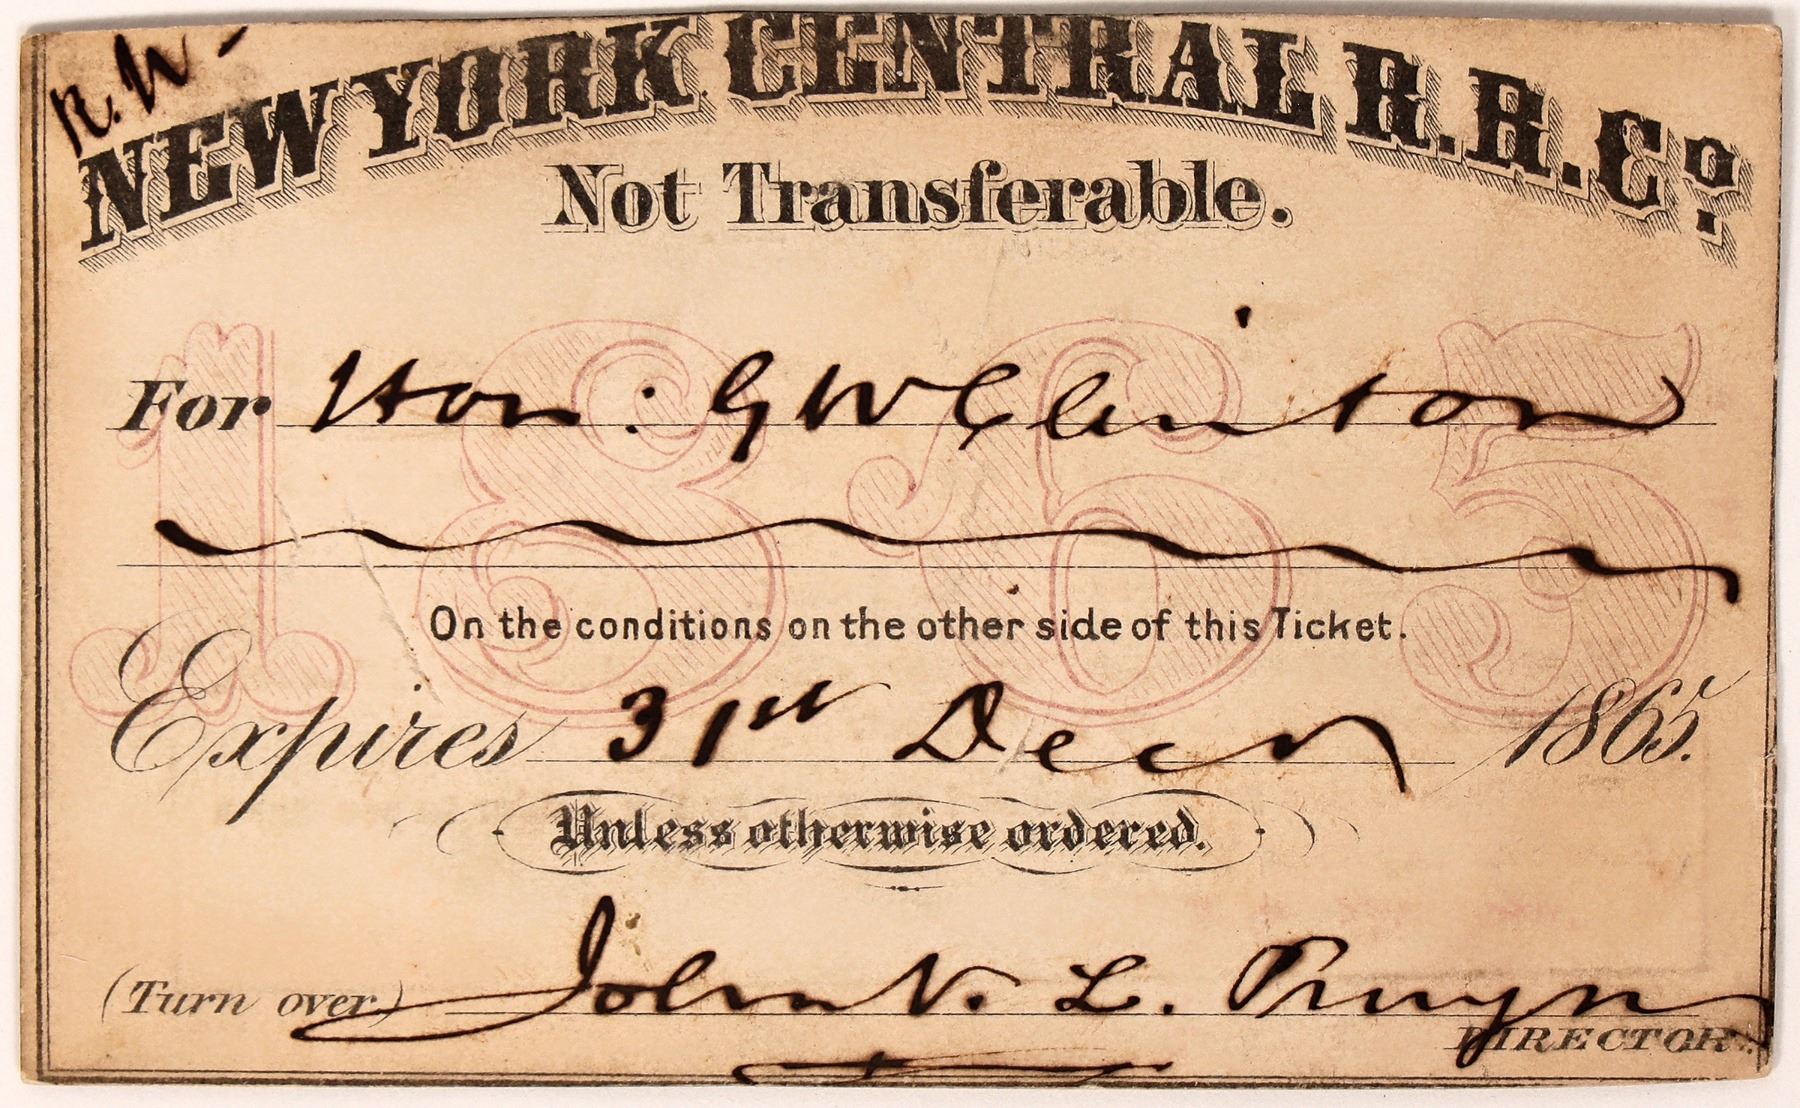 R. N -
NEW YORK CENTRAL R. R. Co.
Not Transferable.
1865
For Hon: G W Clinton
On the conditions on the other side of this Ticket.
Expires 31st Decr 1865.
Unless otherwise ordered.
(Turn over) John V. L. Pruyn
DIRECTOR.